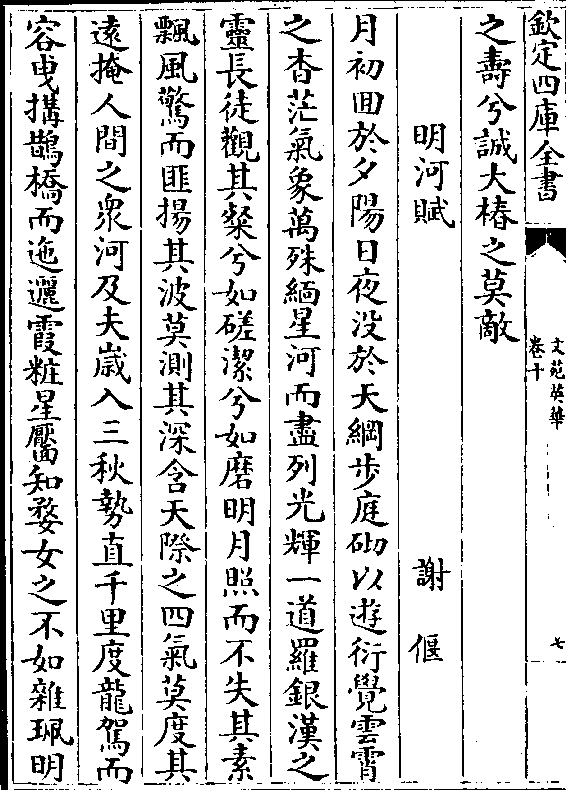 欽定四庫全書
文苑英華
卷十
七
之壽兮誠大椿之莫敵
明河賦
謝偃
月初囬於夕陽日夜没於天綱步庭砌以遊衍覺雲霄
之杳茫氣象萬殊緬星河而盡列光輝一道羅銀漢之
靈長徒觀其粲兮如磋潔兮如磨明月照而不失其素
飄風驚而匪揚其波莫測其深含天際之四氣莫度其
遠掩人間之衆河及夫嵗入三秋勢直千里度龍駕而
容曳搆鵲橋而迤邐霞粧星靨知婺女之不如雜珮明